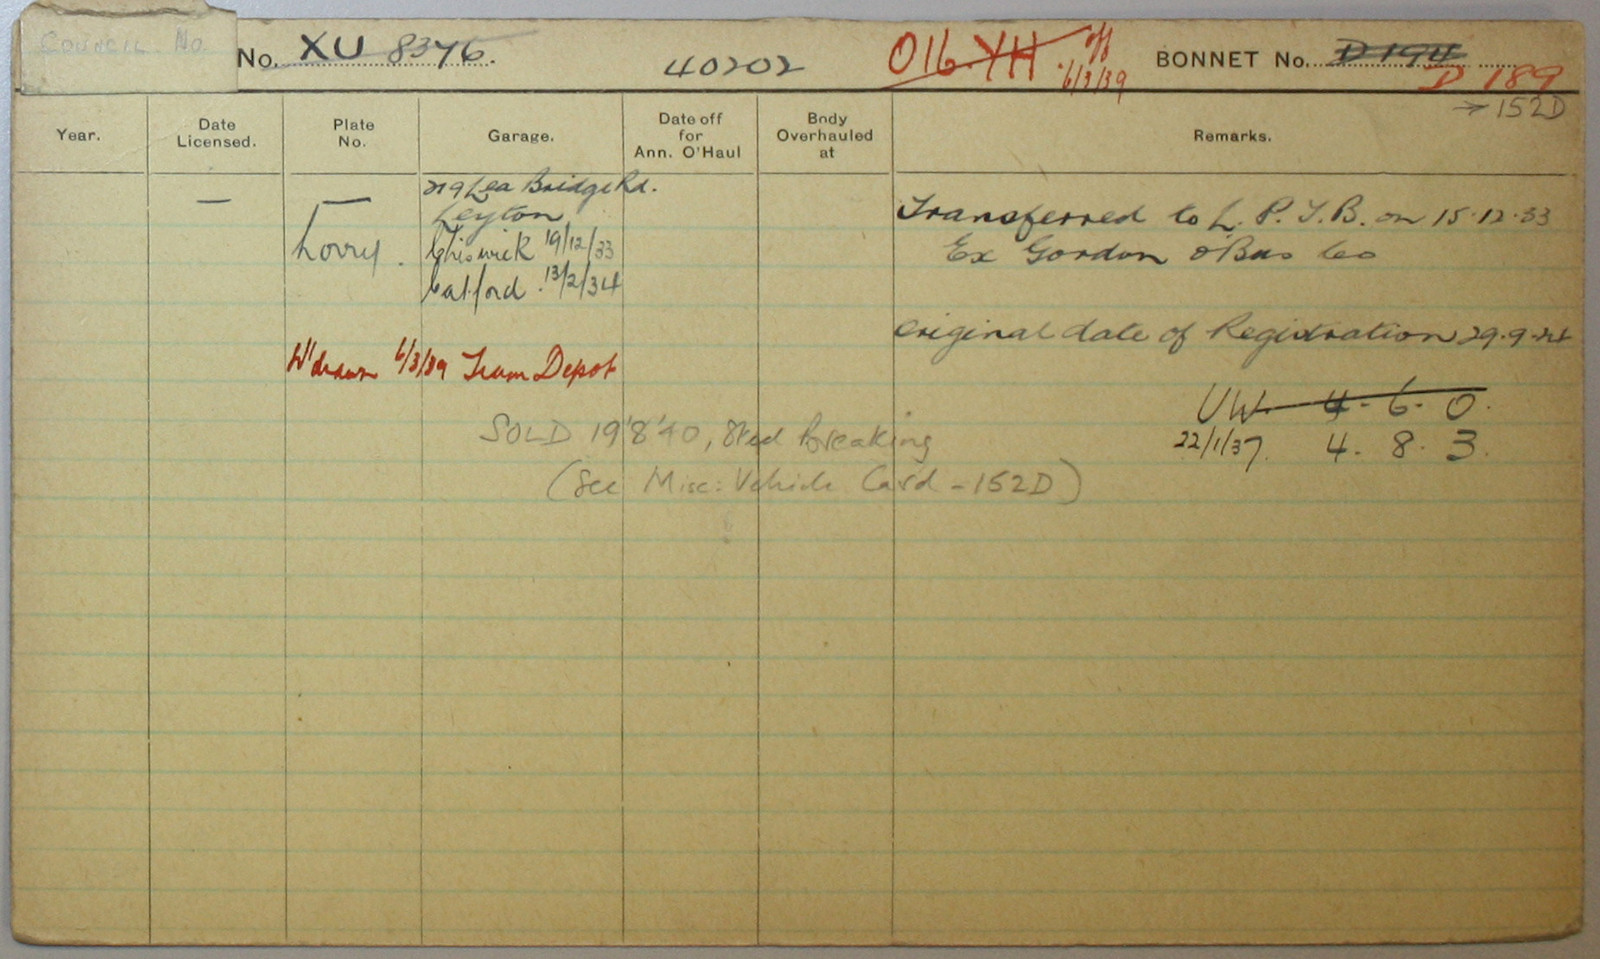 COUNCIL No.
No. XU 8376. 40202 016 YH off 6/3/39 BONNET No. D 194 D 189
→ 152D
Year. Date Licensed. Plate No. Garage. Date off for Ann. O'Haul Body Overhauled at Remarks.
— — 219 Lea Bridge Rd.
Leyton Transferred to L. P. T. B. on 15.12.33
Lorry. Chiswick 19/12/33 Ex Gordon o'Bus Co
Catford. 13/2/34
Original date of Registration 29.9.24
W'drawn 6/3/39 Tram Depot
UW. 4. 6. 0.
SOLD 19'8'40, breaking
22/1/37. 4. 8. 3.
(See Misc: Vehicle Card - 152D)